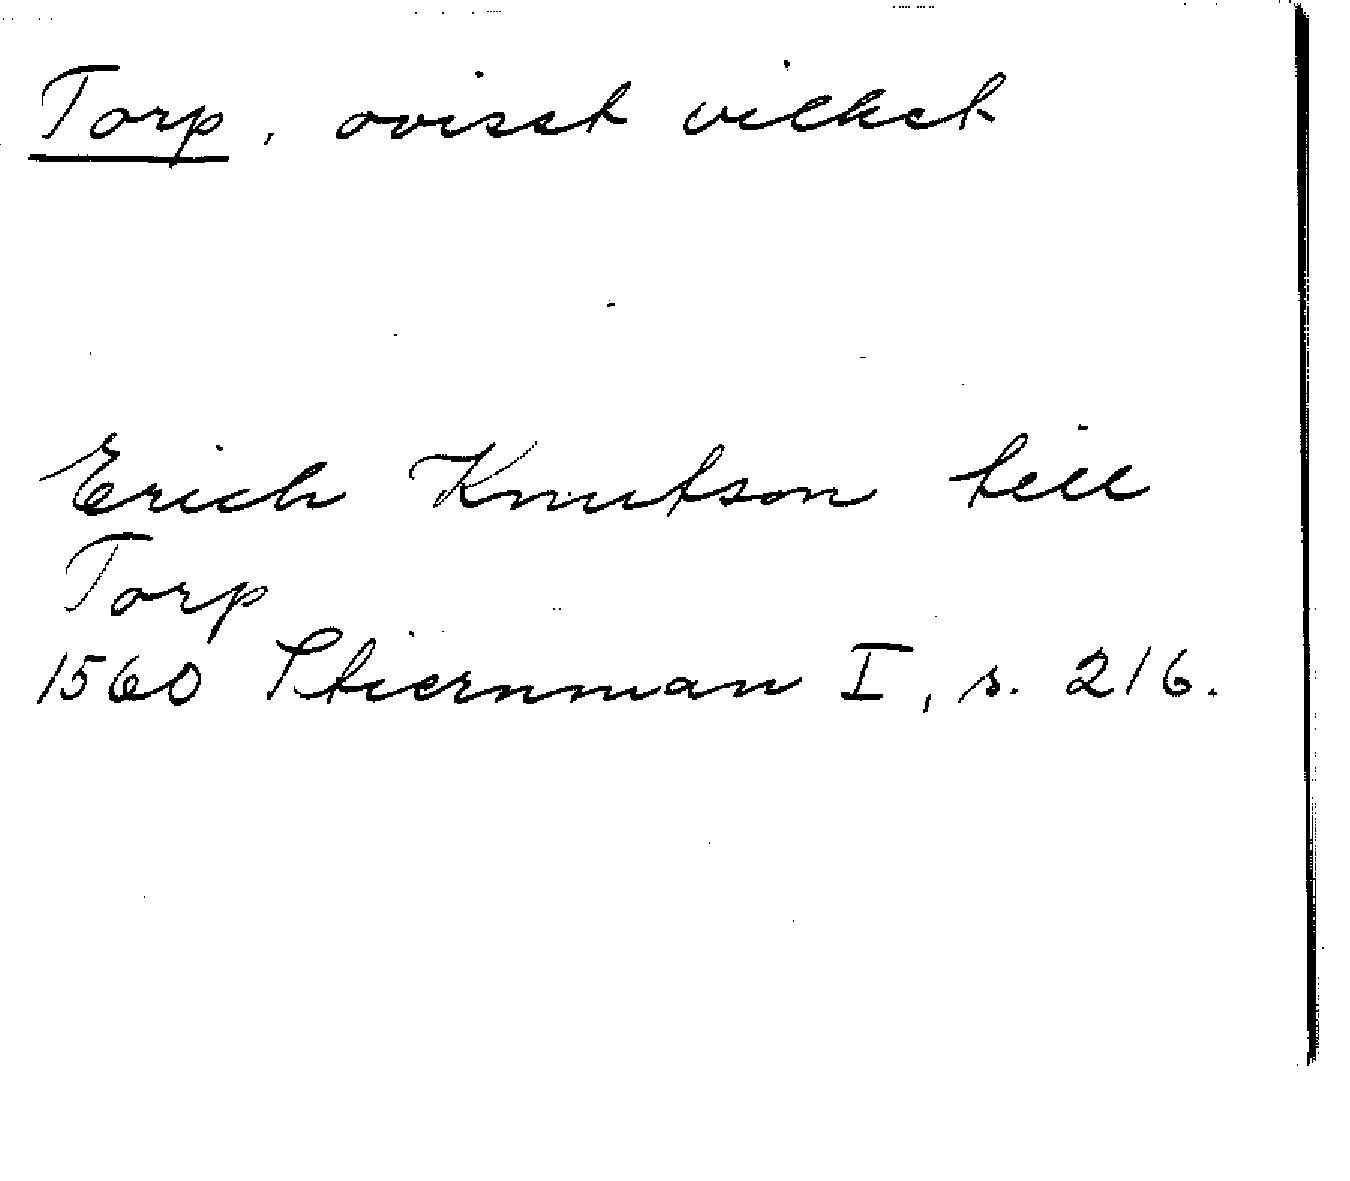 Torp, ovisst vilket
Erich Knutson till
Torp
1560 Stiernman I, s. 216.